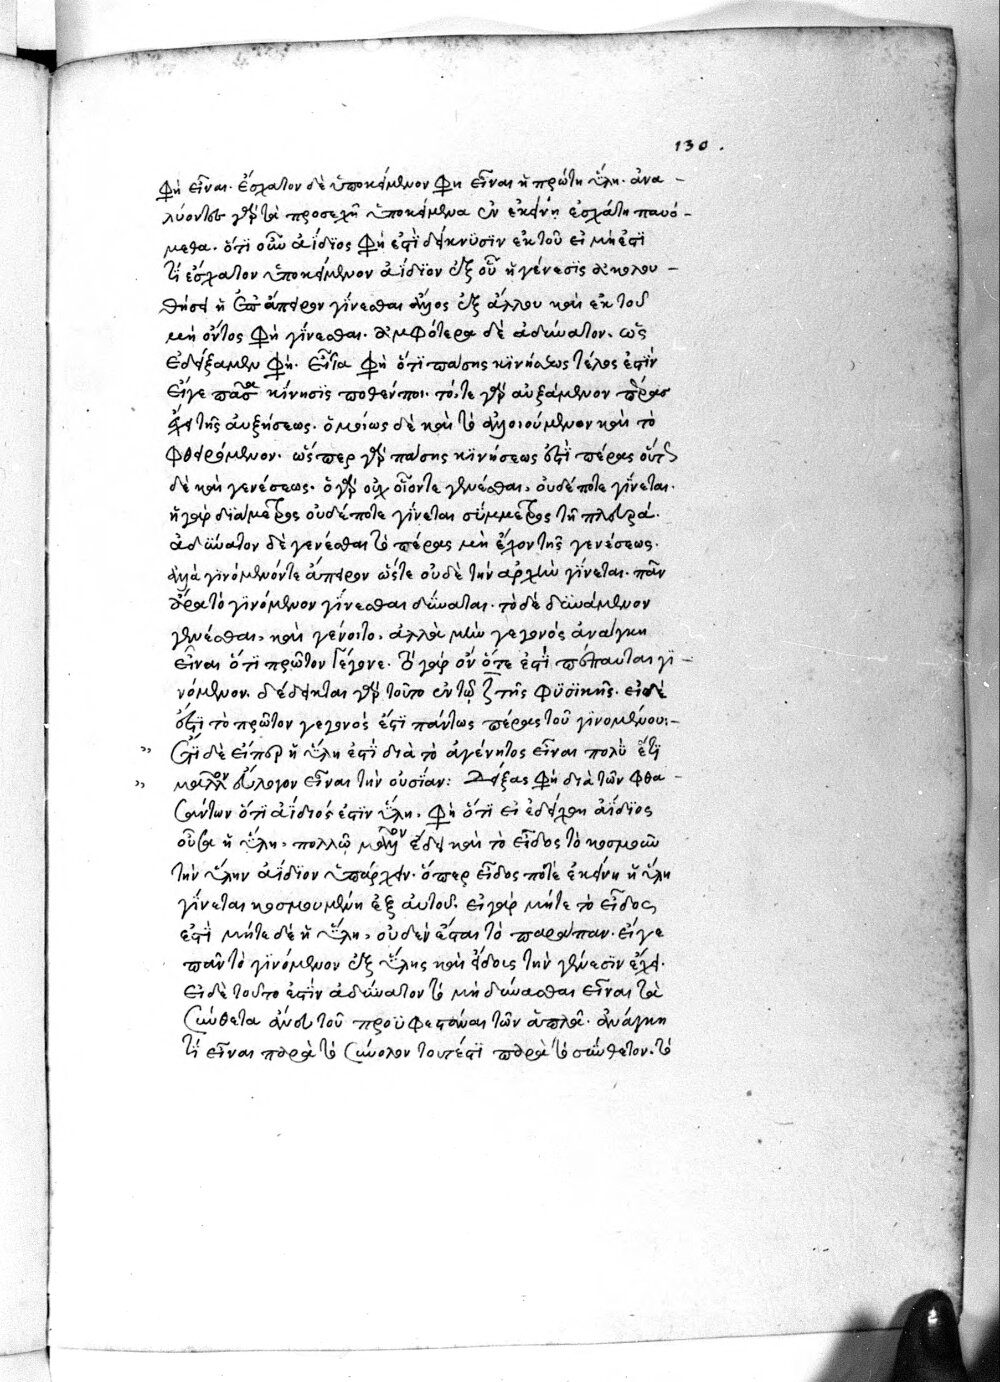 130.
φησὶ εἶναι. ἔσχατον δὲ ὑποκείμενον φησὶ εἶναι ἡ πρώτη ὕλη. ἀνα-
λύοντες γὰρ τὰ προσεχῆ ὑποκείμενα ἐν ἐκείνῃ ἐσχάτῃ παυό-
μεθα. ὅτι οὖν ἀΐδιος φησὶ ἐστὶ δείκνυσιν ἐκ τοῦ εἰ μὴ ἐστὶ
τί ἔσχατον ὑποκείμενον ἀΐδιον ἐξ οὗ ἡ γένεσις ἀκολου-
θήσει ἢ ἐπ' ἄπειρον γίνεσθαι ἄλλος ἐξ ἄλλου καὶ ἐκ τοῦ
μὴ ὄντος φησὶ γίνεσθαι. ἀμφότερα δὲ ἀδύνατον. ὡς
ἐδείξαμεν φησί. εἶτα φησὶ ὅτι πάσης κινήσεως τέλος ἐστὶν
εἴγε πᾶσα κίνησις ποθέν ποι. τό, τε γὰρ αὐξάμενον πέρας
ἔχει τῆς αὐξήσεως. ὁμοίως δὲ καὶ τὸ ἀλλοιούμενον καὶ τὸ
φθειρόμενον. ὥσπερ γὰρ πάσης κινήσεως ἐστὶ πέρας οὕτω
δὲ καὶ γενέσεως. ὃ γὰρ οὐχ οἷόντε γενέσθαι, οὐδέποτε γίνεται.
ἡ γὰρ διάμετρος οὐδέποτε γίνεται σύμμετρος τῇ πλευρᾷ.
ἀδύνατον δὲ γενέσθαι τὸ πέρας μὴ ἔχον τῆς γενέσεως.
ἀλλὰ γινόμενόν τε ἄπειρον ὥστε οὐδὲ τὴν ἀρχὴν γίνεται. πᾶν
ἄρα τὸ γινόμενον γίνεσθαι δύναται. τὸ δὲ δυνάμενον
γενέσθαι, καὶ γένοιτο. ἀλλὰ μὴν γεγονὸς ἀνάγκη
εἶναι ὅτι πρῶτον γέγονε. ὃ γὰρ ὂν ὅτε ἐστὶ πέπαυται γι-
νόμενον. δέδεικται γὰρ τοῦτο ἐν τῷ ζ τῆς φυσικῆς. εἰ δὲ
ἐστὶ τὸ πρῶτον γεγονὸς ἐστὶ πάντως πέρας τοῦ γινομένου:-
ἔτι δὲ εἴπερ ἡ ὕλη ἐστὶ διὰ τὸ ἀγένητος εἶναι πολὺ ἔτι
μᾶλλον εὔλογον εἶναι τὴν οὐσίαν: δείξας φησὶ διὰ τῶν φθα-
σάντων ὅτι ἀΐδιός ἐστιν ὕλη. φησὶ ὅτι εἰ ἐδείχθη ἀΐδιος
οὖσα ἡ ὕλη, πολλῷ μᾶλλον ἔδει καὶ τὸ εἶδος τὸ κοσμοῦν
τὴν ὕλην ἀΐδιον ὑπάρχειν. ὅπερ εἶδος ποτὲ ἐκείνη ἡ ὕλη
γίνεται κοσμουμένη ἐξ αὐτοῦ. εἰ γὰρ μήτε τὸ εἶδος
ἐστὶ μήτε δὲ ἡ ὕλη, οὐδὲν ἔσται τὸ παράπαν. εἴγε
πᾶν τὸ γινόμενον ἐξ ὕλης καὶ εἴδους τὴν γένεσιν ἔχει.
εἰ δὲ τοῦτο ἐστὶν ἀδύνατον τὸ μὴ δύνασθαι εἶναι τὰ
σύνθετα ἄνευ τοῦ προϋφεστάναι τῶν ἁπλῶν. ἀνάγκη
τὶ εἶναι παρὰ τὸ σύνολον τουτέστι παρὰ τὸ σύνθετον. τὸ